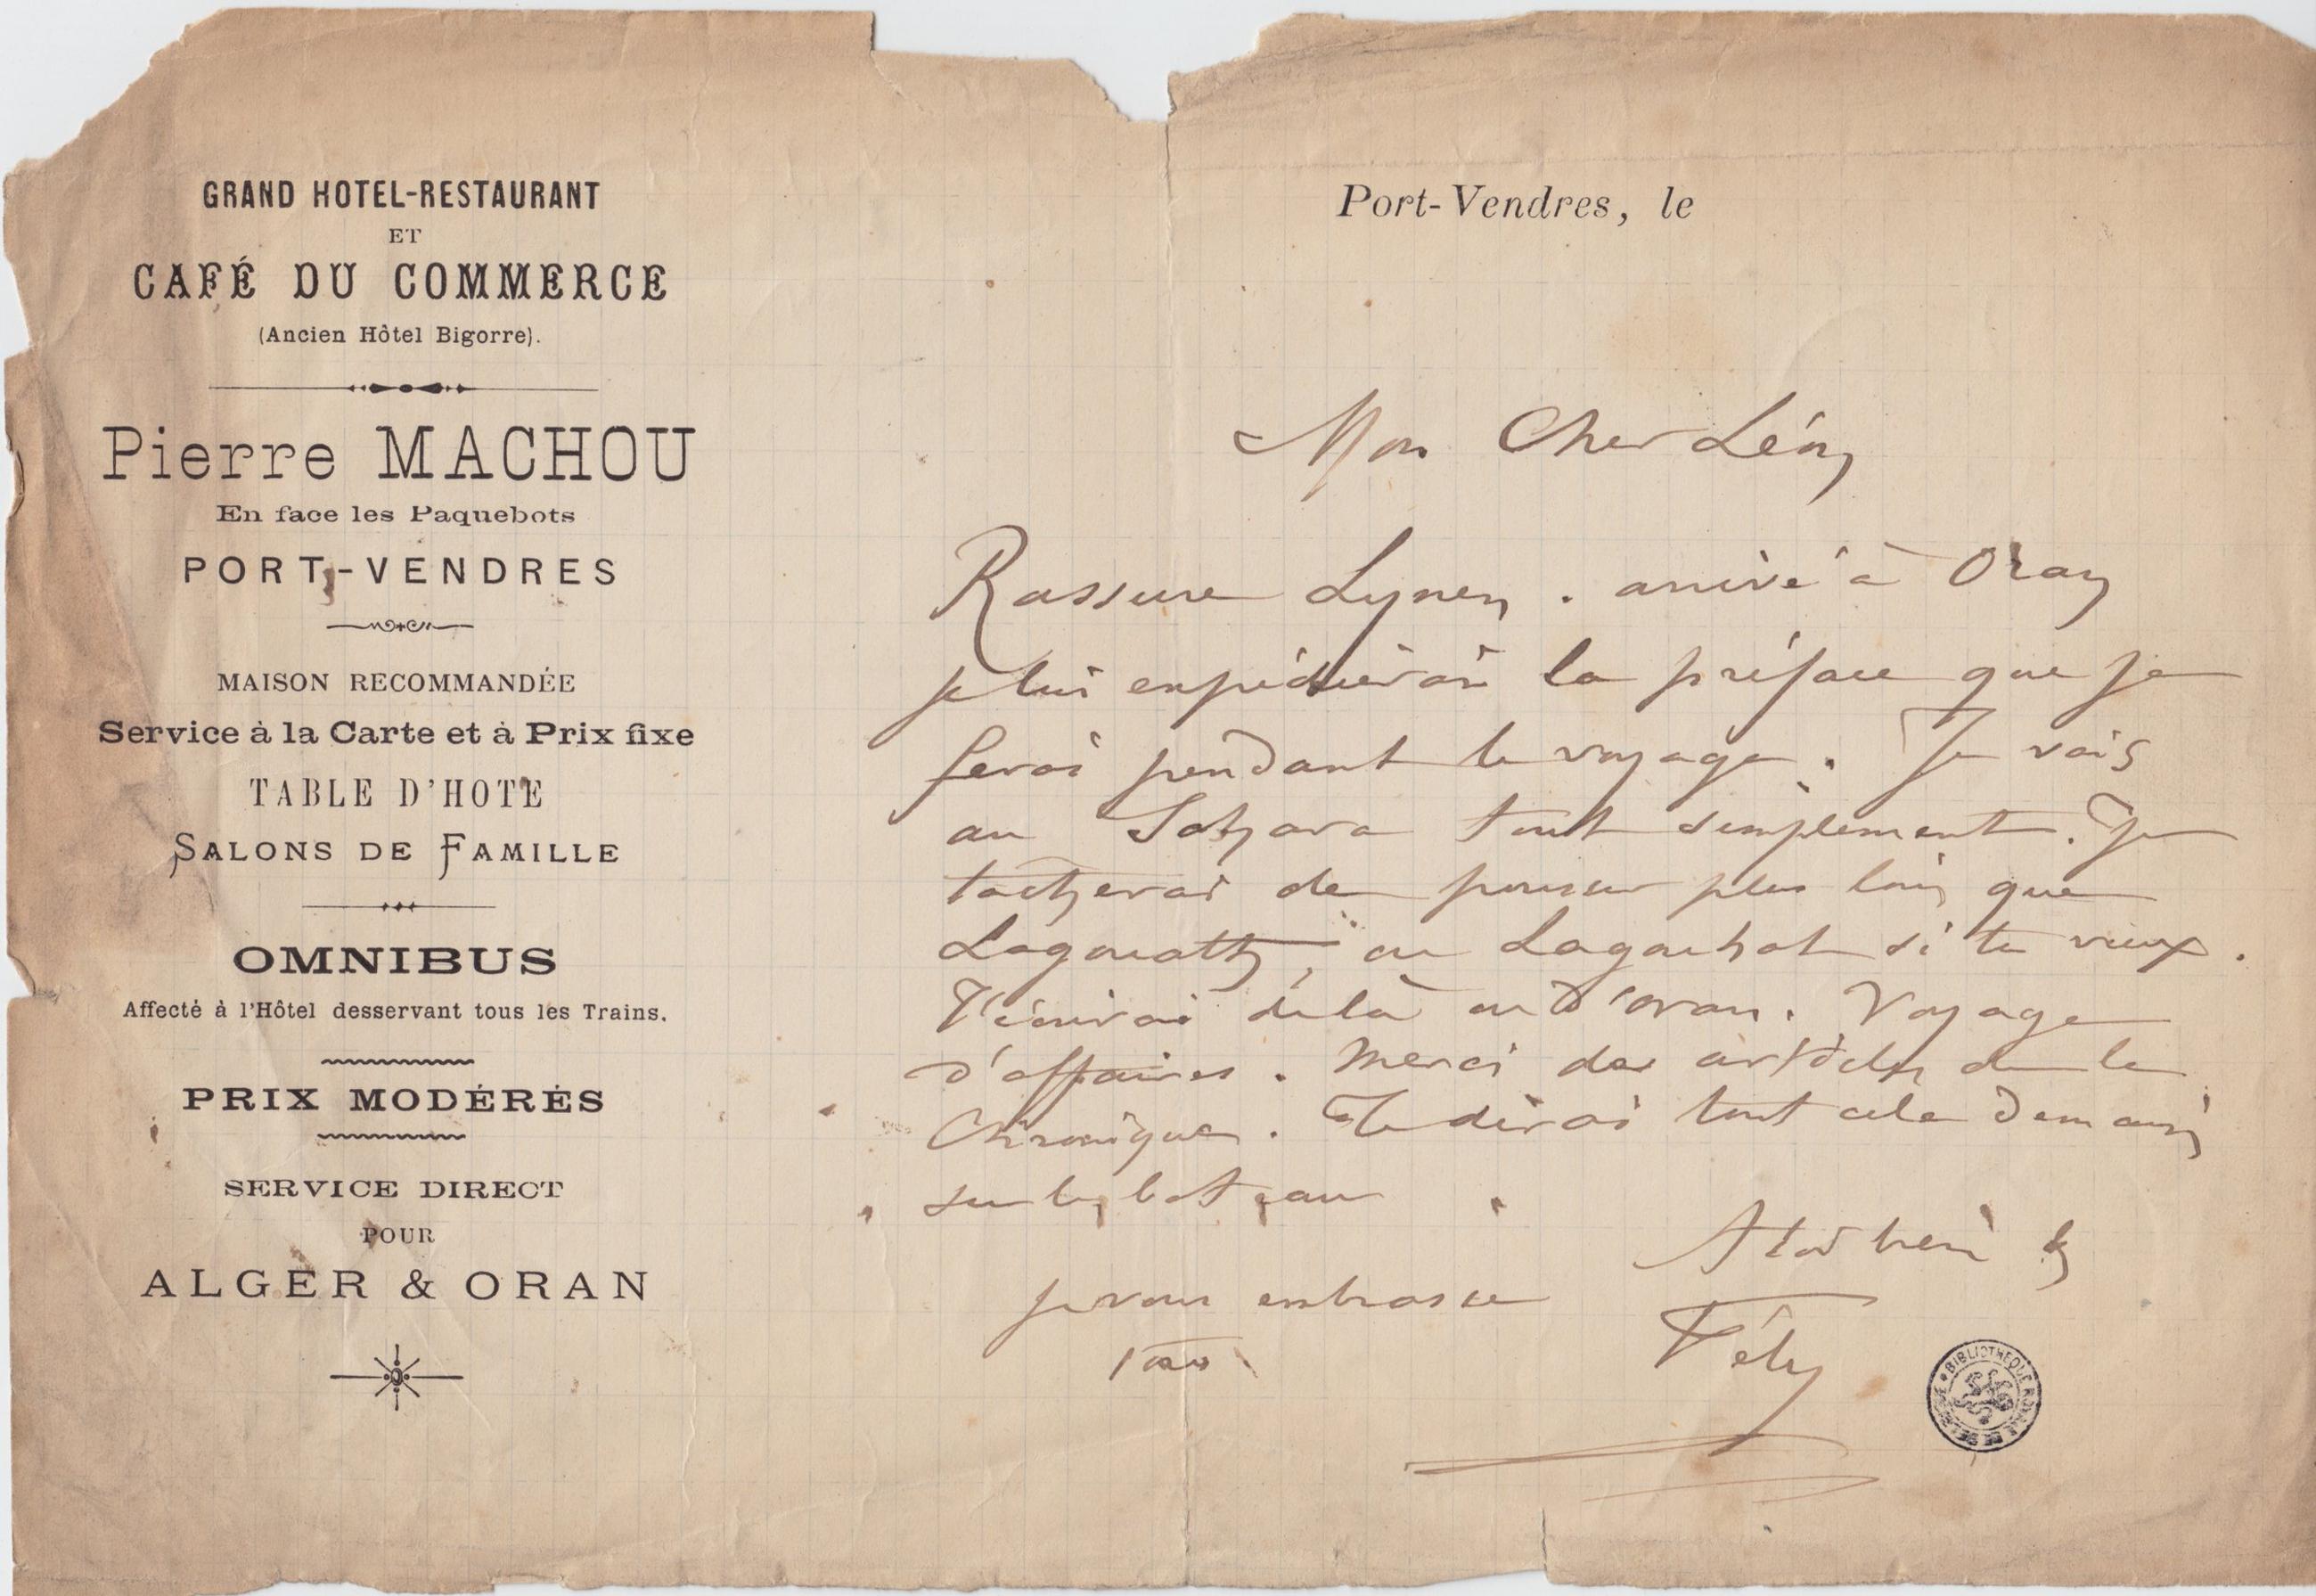 GRAND HOTEL-RESTAURANT
ET
CAFÉ DU COMMERCE
(Ancien Hôtel Bigorre).
Pierre MACHOU
En face les Paquebots
PORT-VENDRES
MAISON RECOMMANDÉE
Service à la Carte et à Prix fixe
TABLE D'HOTE
SALONS DE FAMILLE
OMNIBUS
Affecté à l'Hôtel desservant tous les Trains.
PRIX MODÉRÉS
SERVICE DIRECT
POUR
ALGER & ORAN
Port-Vendres, le
Mon Cher Léon
Rassure Lynen. arrivé à Oran
je lui expédierai la préface que je
ferai pendant le voyage. Je vais
au Sahara tout simplement. Je
tacherai de pousser plus loin que
Lagouatt, ou Lagouhat si tu veux.
T'écrirai de là ou d'oran. Voyage
d'affaires. Merci des articles de la
Chronique. Te dirai tout cela demain
sur le bateau
A toi
je vous embrasse
tous
Fély
BIBLIOTHEQUE ROYALE DE BELGIQUE